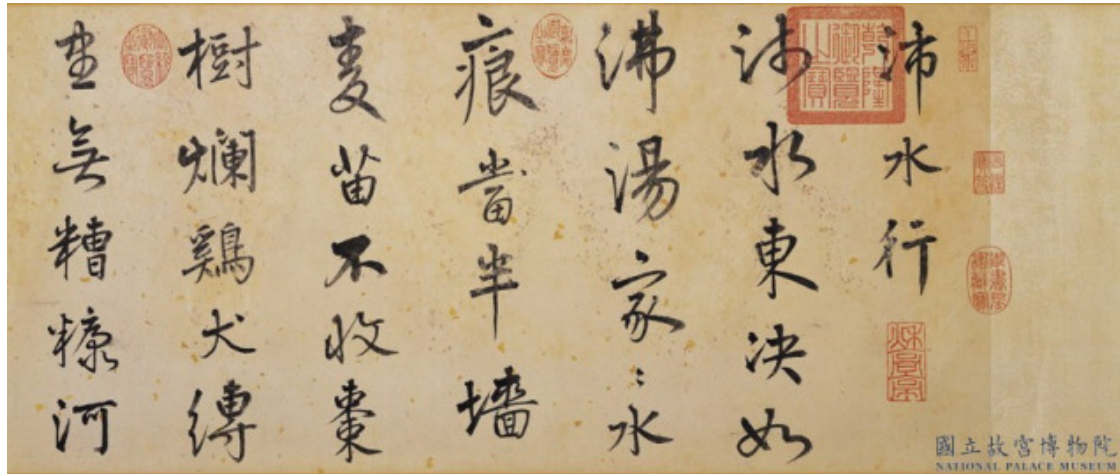 沛水行
沛水東決如
沸湯家〻水
痕當半墻
麦苗不收棗
樹爛鷄犬縛
盡無糟糠河
乾隆御覽之寶
嘉慶御覽之寶
國立故宮博物院
NATIONAL PALACE MUSEUM